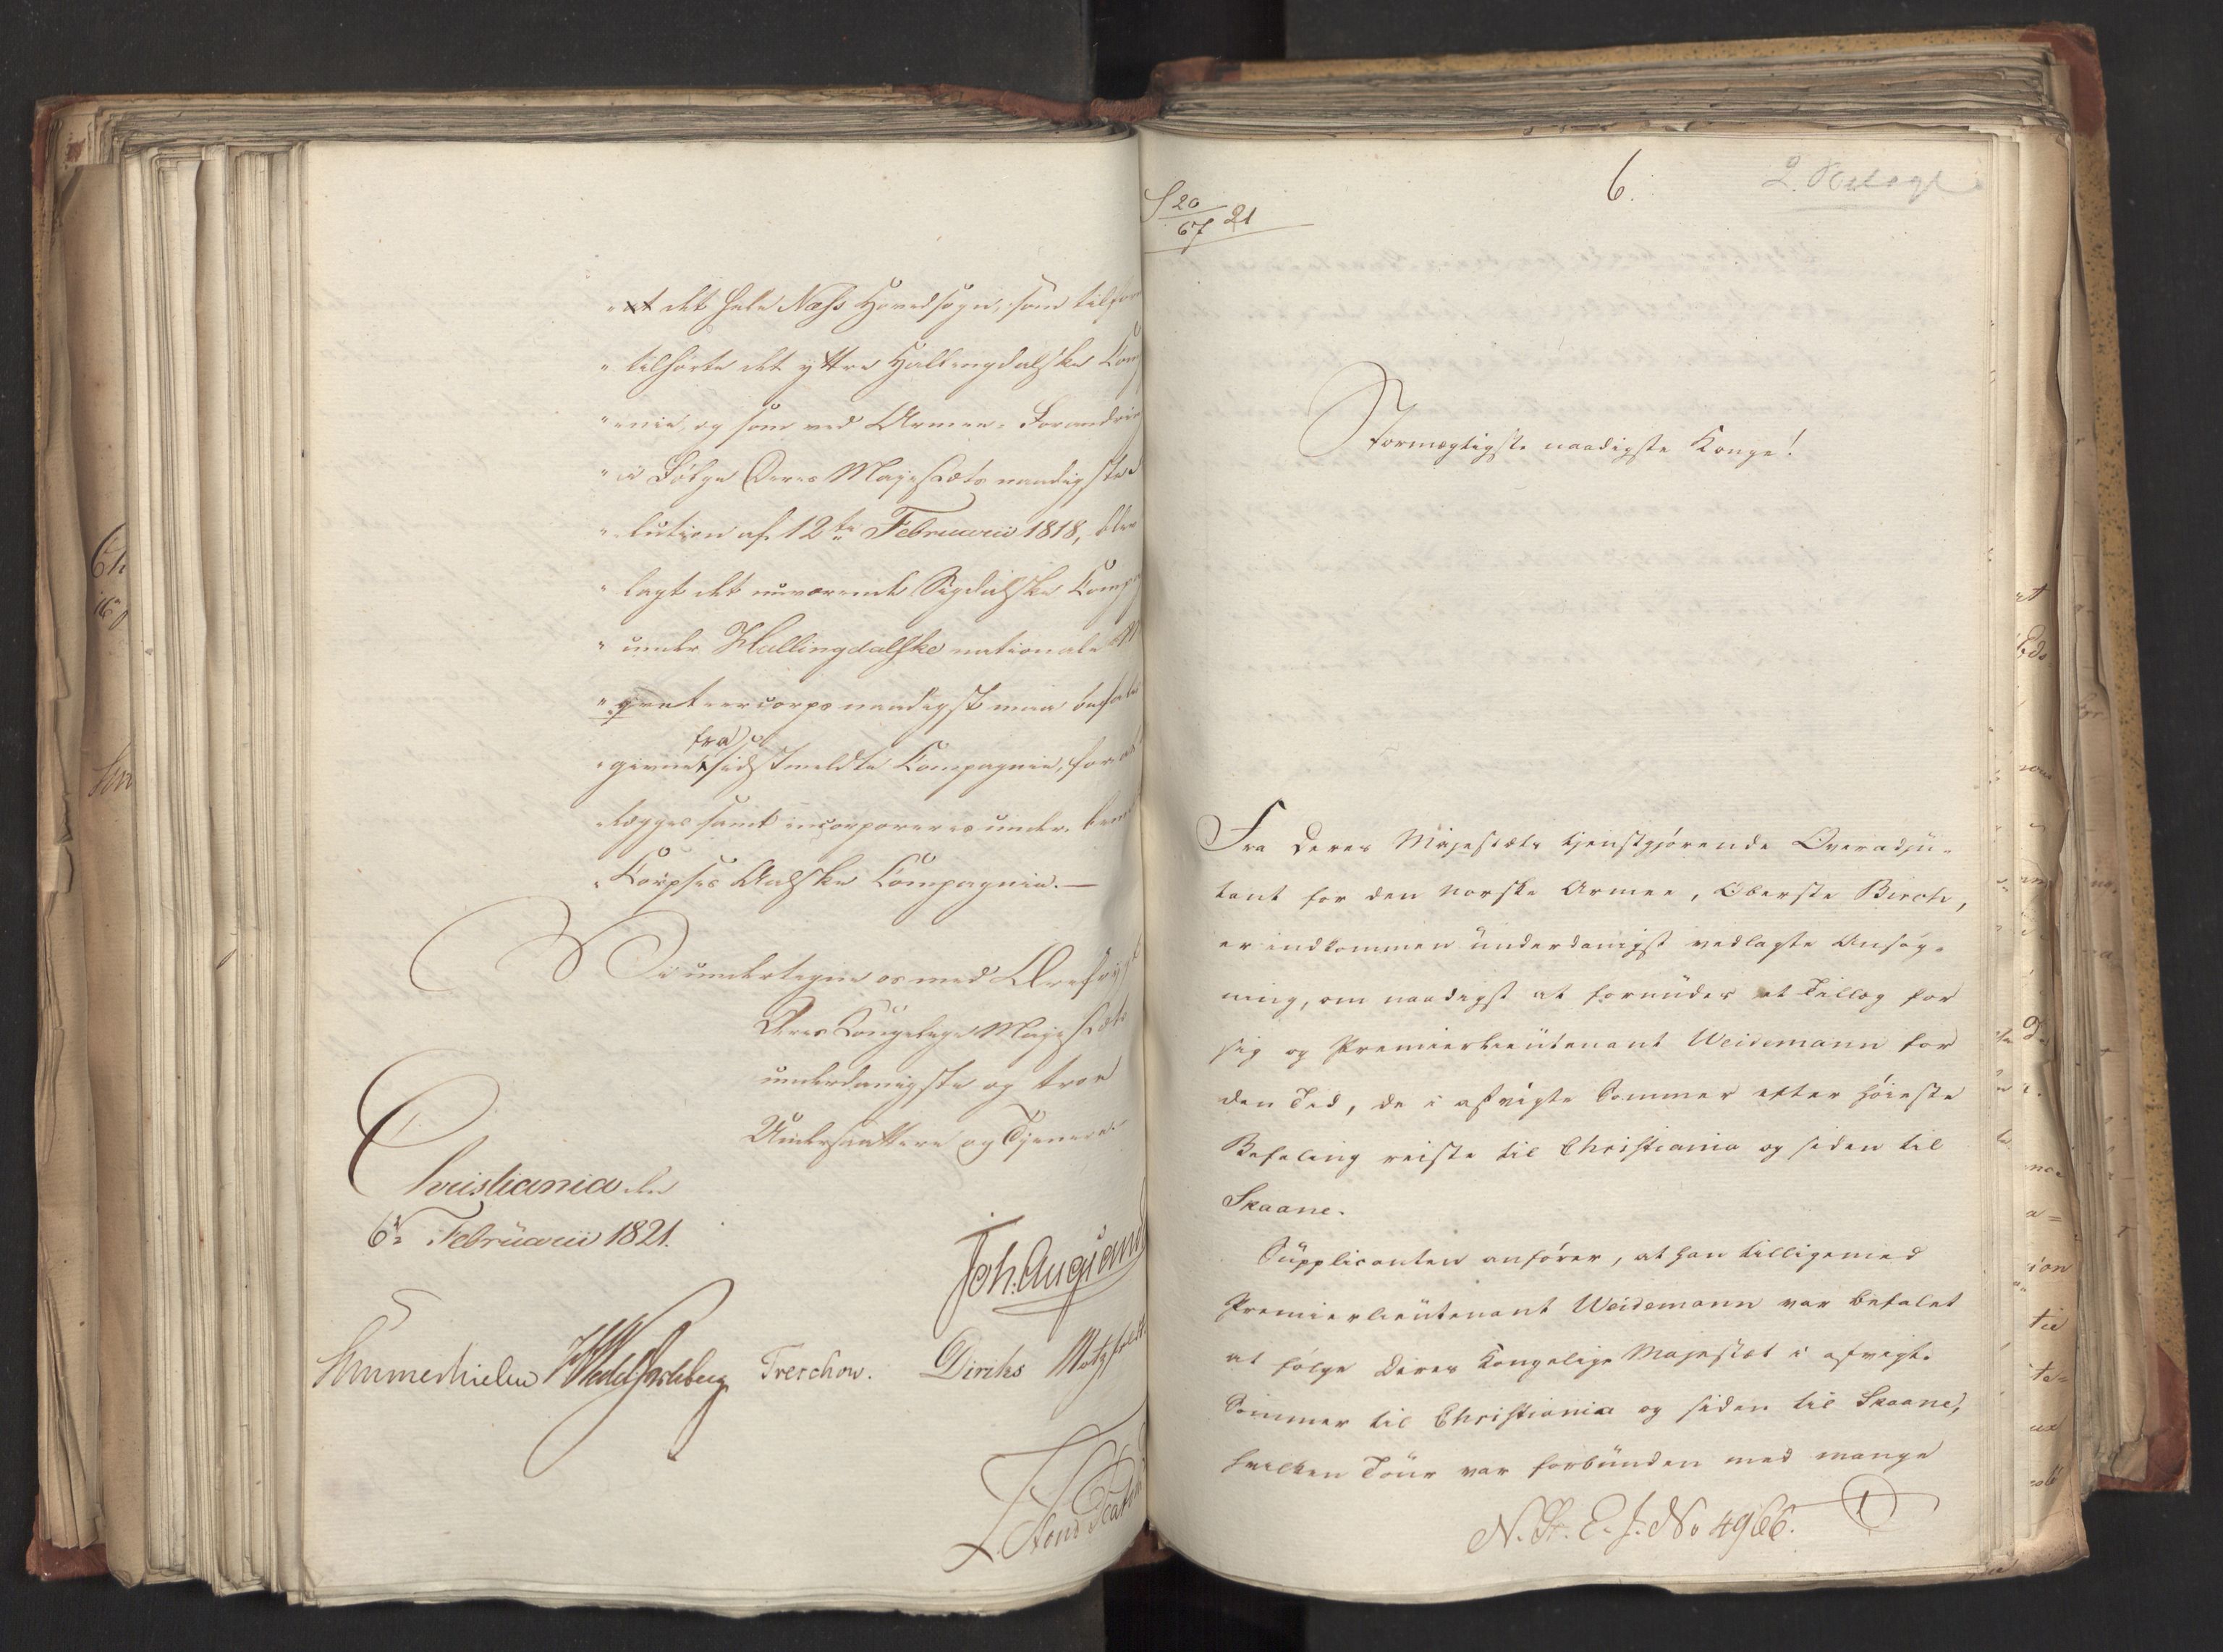 "at det hele Næss Hovedsogn, som tilforn
"tilhørte det yttre Hallingdalske Comp
"nie, og som ved Armee-Forandrin
"i Følge Deres Majestæts naadigste
"lution af 12te Februarii 1818, blev
"lagt det nuværende Sigdalske Comp
"under Hallingdalske nationale M
"queteercorps naadigst maa befales
fra
"given sidstmeldte Compagnie, for at
"lægges samt incorporeres under bem
"Corpses Aalske Compagnie.—
Vi undertegne os med Ærefrygt
Deres Kongelige Majestæts
underdanigste og troe
Undersaattere og Tjenere
Christiania den
6te Februarii 1821.
Joh. Aug. Sand
Sommerhielm HWedelJarlsberg Treschow. Diriks Motzfeldt
L.
S 20/67 21
6.
2. Bilage
Stormægtigste naadigste Konge!
Fra Deres Majestæts tjenstgjørende Overadju-
tant for den norske Armee, Oberste Birch,
er indkommen underdanigst vedlagte Ansøg-
ning, om naadigst at forundes et Tillæg for
sig og Premierlieutenant Weidemann for
den Tid, de i afvigte Sommer efter høieste
Befaling reiste til Christiania og siden til
Skaane.
Supplicanten anfører, at han tilligemed
Premierlieutenant Weidemann var befalet
at følge Deres Kongelige Majestæt i afvigte
Sommer til Christiania og siden til Skaane,
hvilken Tour var forbunden med mange
N. St. E. J. No 4966.